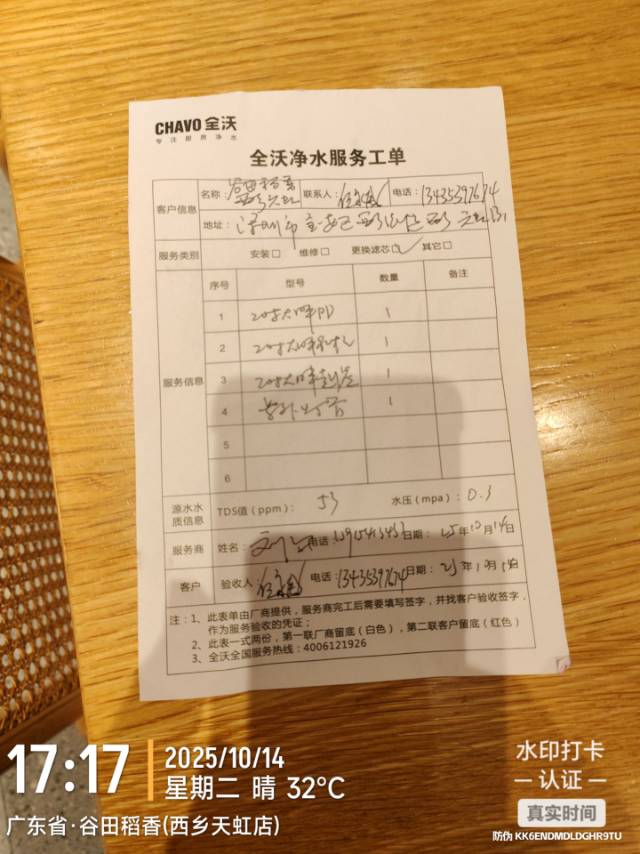 CHAVO 全沃
专注厨房净水
全沃净水服务工单
客户信息 名称: 谷田稻香 西乡天虹 联系人: 电话: 13435397674
地址: 深圳市宝安区西乡 西乡天虹
服务类别 安装□ 维修□ 更换滤芯□✓ 其它□
服务信息 序号 型号 数量 备注
1 20寸大胖PP 1
2 20寸大胖 1
3 20寸大胖 1
4 紫外灯管 1
5
6
源水水质信息 TDS值(ppm): 53 水压(mpa): 0.3
服务商 姓名: 电话: 日期: 25年10月14日
客户 验收人: 电话: 13435397674 日期: 25年10月14日
注:1、此表单由厂商提供,服务商完工后需要填写签字,并找客户验收签字,
作为服务验收的凭证;
2、此表一式两份,第一联厂商留底(白色),第二联客户留底(红色)
3、全沃全国服务热线:4006121926
17:17
2025/10/14
星期二 晴 32℃
广东省·谷田稻香(西乡天虹店)
水印打卡
认证
真实时间
防伪 KK6ENDMDLDGHR9TU